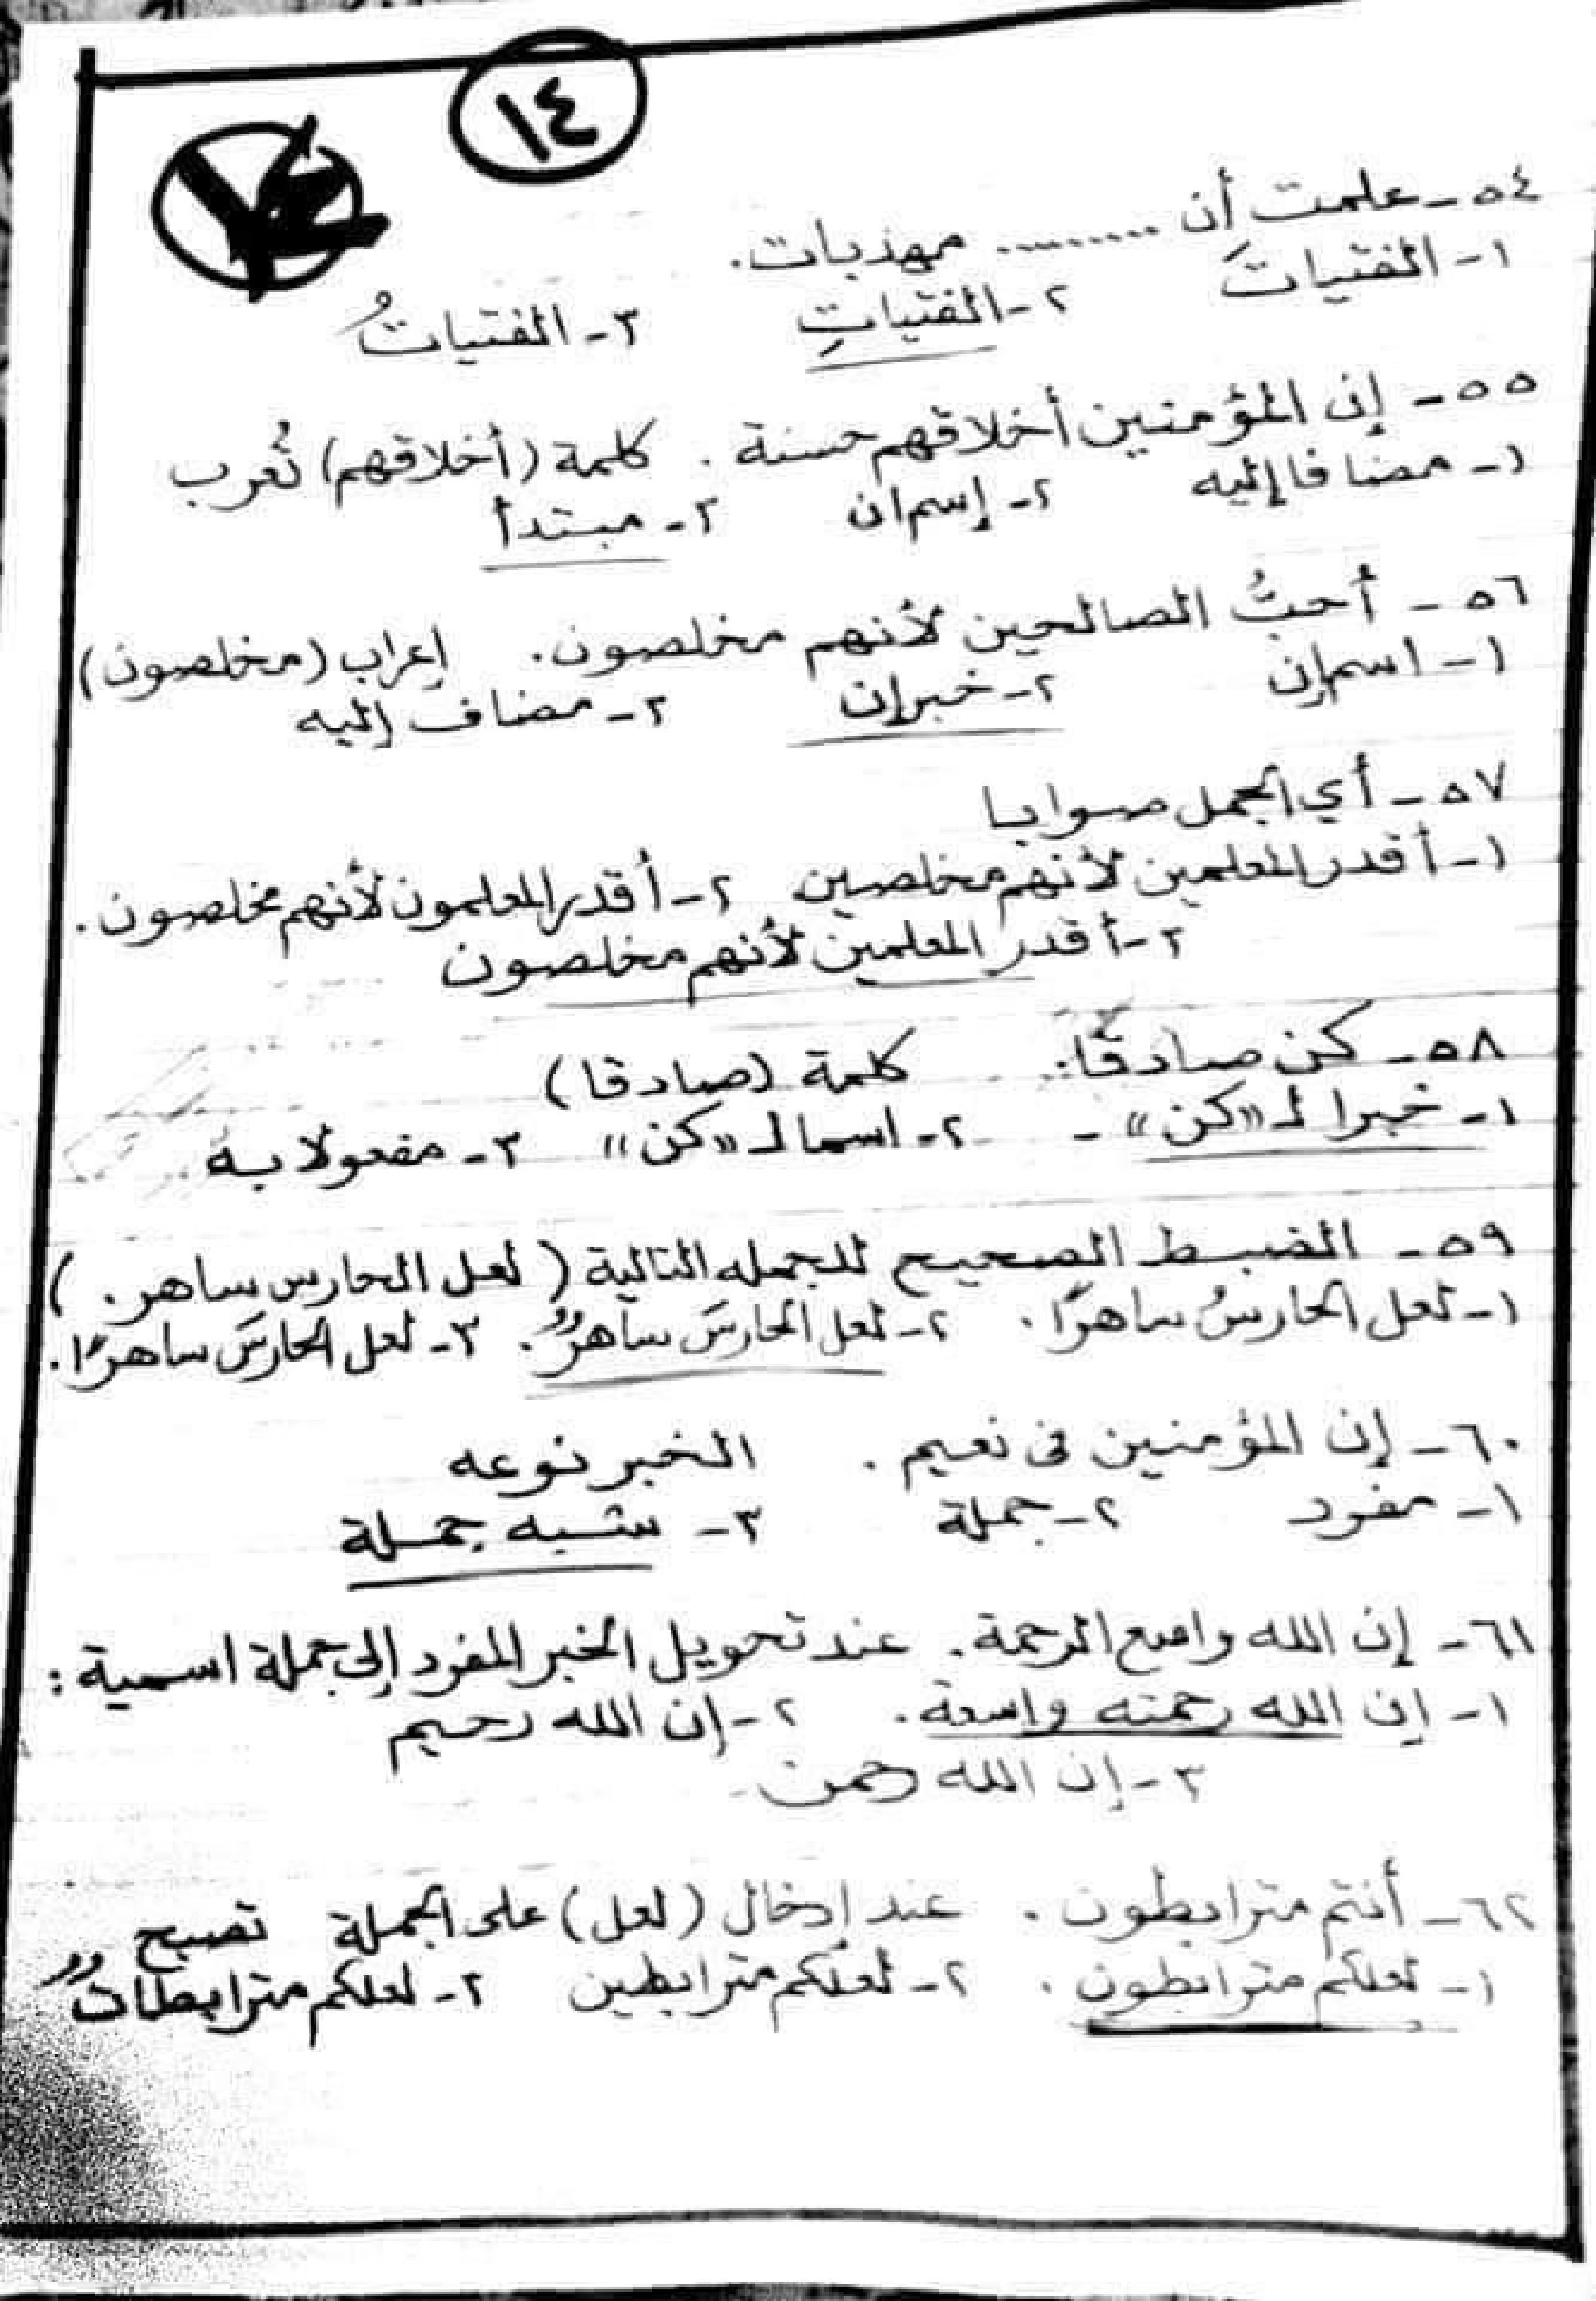 ١٤
٥٤ - علمت أن ......... مهذبات.
١- الفتياتَ ٢- الفتياتِ ٣- الفتياتُ
٥٥ - إن المؤمنين أخلاقهم حسنة . كلمة (أخلاقهم) تُعرب
١- مضافا إليه ٢- إسم ان ٣- مبتدأ
٥٦ - أحبُّ الصالحين لأنهم مخلصون. إعراب (مخلصون)
١- اسم إن ٢- خبر إن ٣- مضاف إليه
٥٧ - أي الجمل صوابا
١- أقدر المعلمين لأنهم مخلصين ٢- أقدر المعلمون لأنهم مخلصون .
٣- أقدر المعلمين لأنهم مخلصون
٥٨ - كن صادقًا: كلمة (صادقا)
١- خبرا لـ «كن» - ٢- اسما لـ «كن» ٣- مفعولا به
٥٩ - الضبط الصحيح للجمله التالية ( لعل الحارس ساهر . )
١- لعل الحارسُ ساهرًا . ٢- لعل الحارسَ ساهرٌ . ٣- لعل الحارسَ ساهرًا .
٦٠ - إن المؤمنين فى نعيم . الخبر نوعه
١- مفرد ٢- جملة ٣- شبه جملة
٦١ - إن الله واسع الرحمة . عند تحويل الخبر المفرد إلى جملة اسمية :
١- إن الله رحمته واسعة . ٢- إن الله رحيم
٣- إن الله رحمن
٦٢ - أنتم مترابطون . عند إدخال (لعل) على الجملة تصبح
١- لعلكم مترابطون . ٢- لعلكم مترابطين ٣- لعلكم مترابطاتٌ